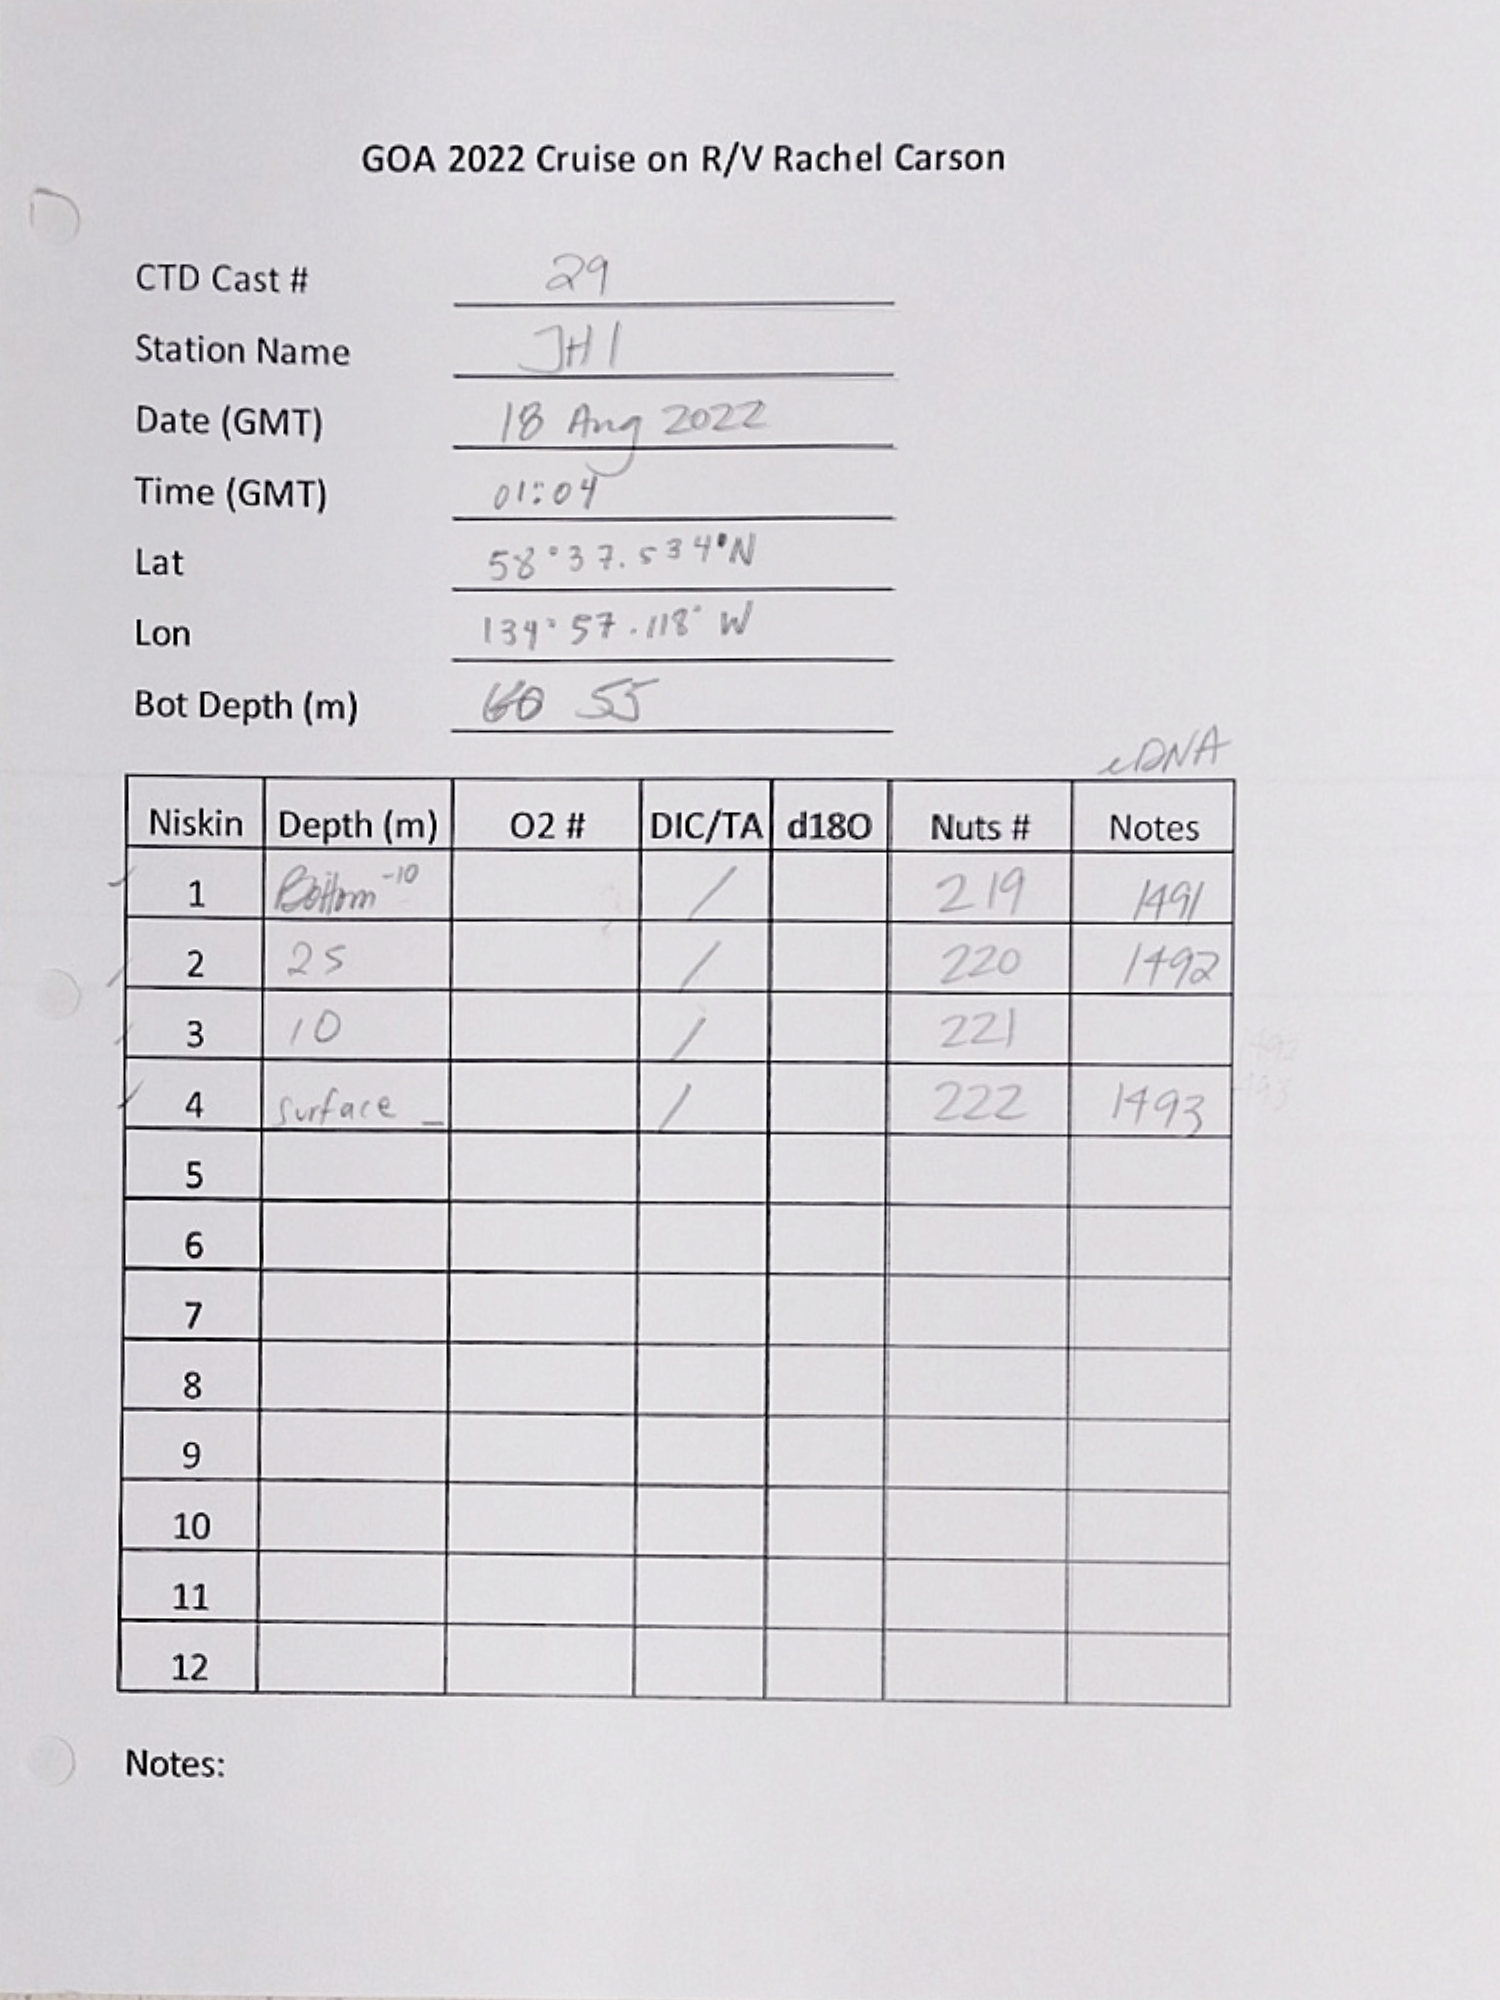 GOA 2022 Cruise on R/V Rachel Carson
CTD Cast # 29
Station Name JH1
Date (GMT) 18 Aug 2022
Time (GMT) 01:04
Lat 58°37.534°N
Lon 134°57.118° W
Bot Depth (m) 55
eDNA
Niskin Depth (m) O2 # DIC/TA d18O Nuts # Notes
1 Bottom -10 / 219 1491
2 25 / 220 1492
3 10 / 221
4 surface _ / 222 1493
5
6
7
8
9
10
11
12
Notes: